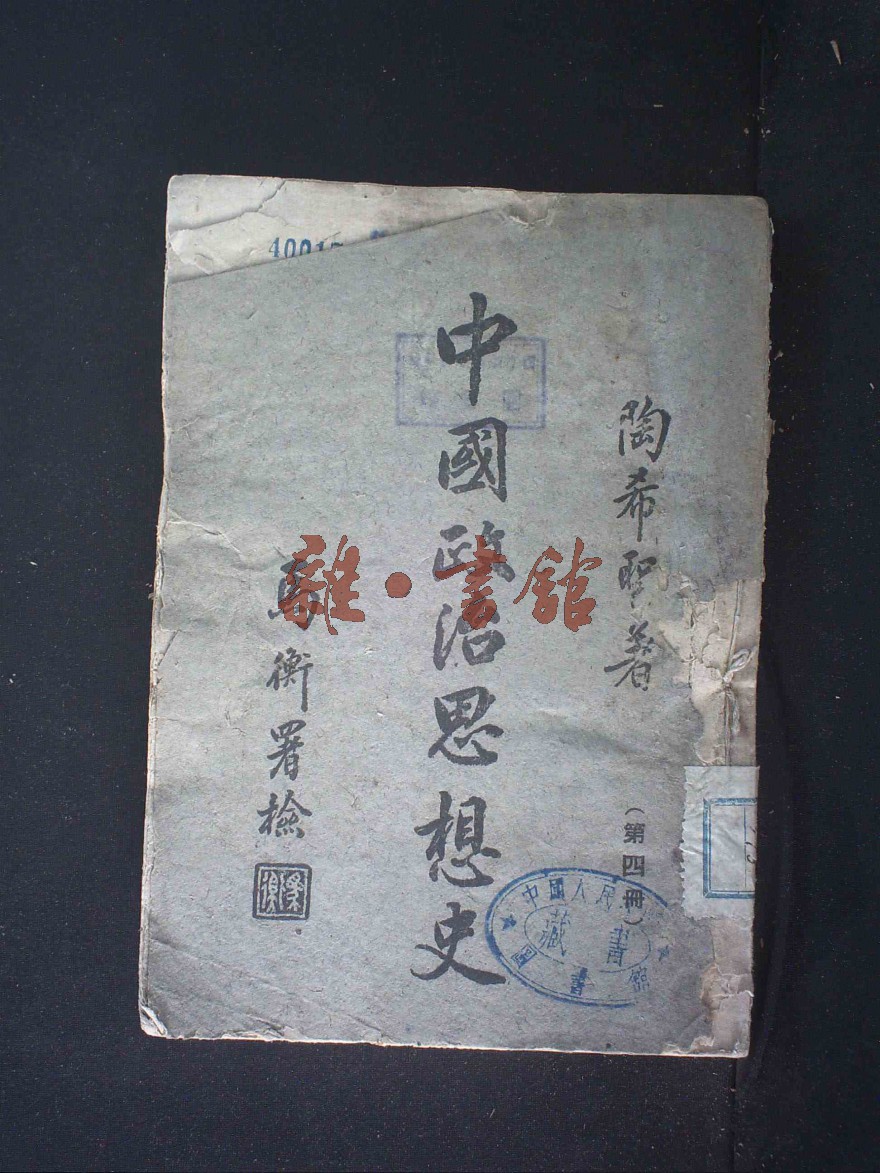 陶希聖著
（第四冊）
中國政治思想史
馬衡署檢
雜·書館
中國人民
圖書館
藏書